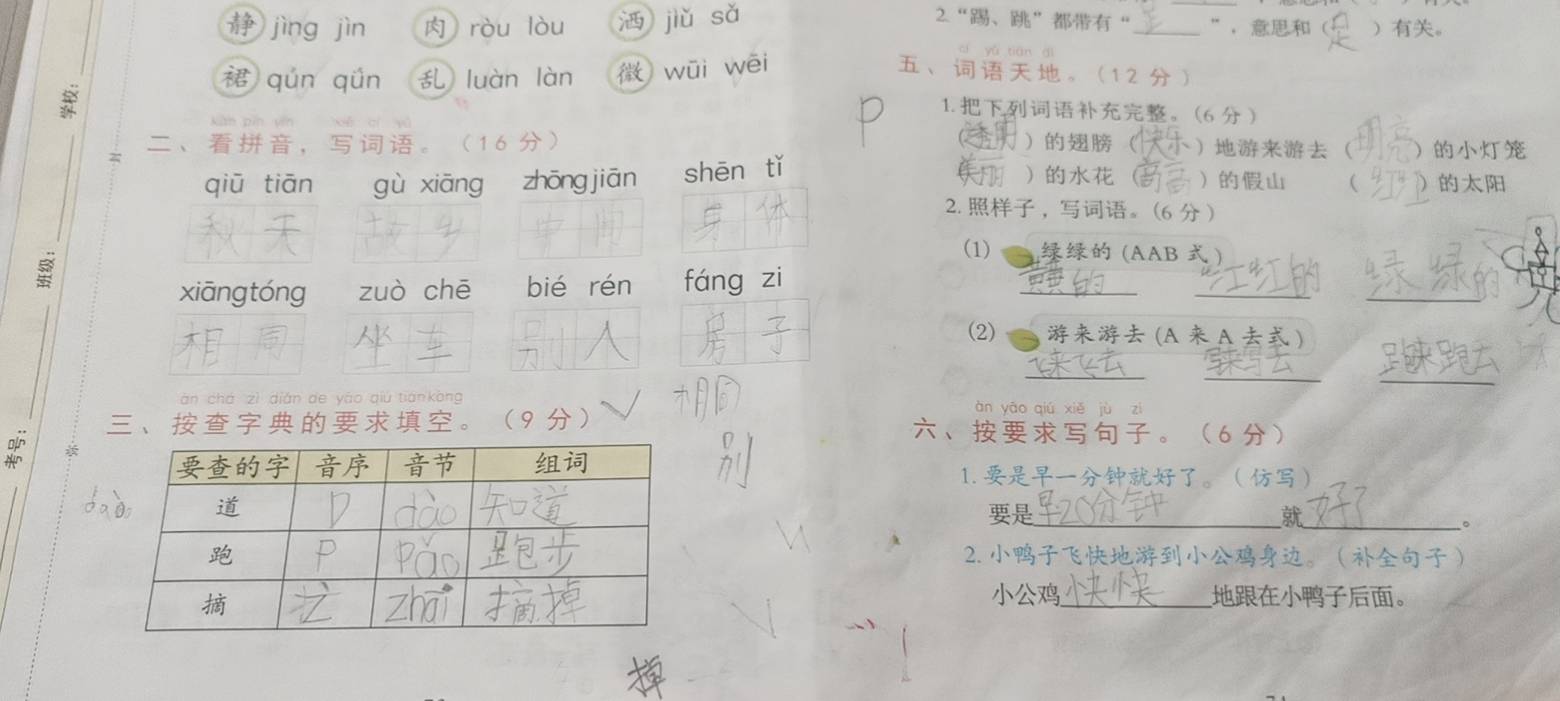 静 jìng jìn 肉 ròu lòu 洒 jiǔ sǎ
裙 qún qǘn 乱 luàn làn 徽 wūi wēi
kàn pīn yīn xiě cí yǔ
二、看拼音，写词语。（16 分）
qiū tiān gù xiāng zhōng jiān shēn tǐ
秋 天 故 乡 中 间 身 体
xiāng tóng zuò chē bié rén fáng zi
相 同 坐 车 别 人 房 子
àn chá zì diǎn de yāo qiú tián kòng
三、按查字典的要求填空。（9 分）
相同
别
要查的字 音序 音节 组词
道 D dào 知道
跑 P pǎo 跑步
摘 zhāi 摘掉
掉
学校：
班级：
考号：
2. “踢、跳”都带有“ ”，意思和（足）有关。
cí yǔ tiān dì
五、词语天地。（12 分）
P
1. 把下列词语补充完整。（6 分）
（透明）的翅膀 （快乐）地游来游去 （明亮）的小灯笼
（美丽）的水花 （高高）的假山 （红红）的太阳
2. 照样子，写词语。（6 分）
(1) 绿绿的 (AAB 式)
黄黄的 红红的 绿绿的
(2) 游来游去 (A 来 A 去式)
飞来飞去 跑来跑去
àn yāo qiú xiě jù zi
六、按要求写句子。（6 分）
1. 要是早一分钟就好了。（仿写）
要是早20分钟就好了。
2. 小鸭子飞快地游到小公鸡身边。（补全句子）
小公鸡快快地跟在小鸭子后面。